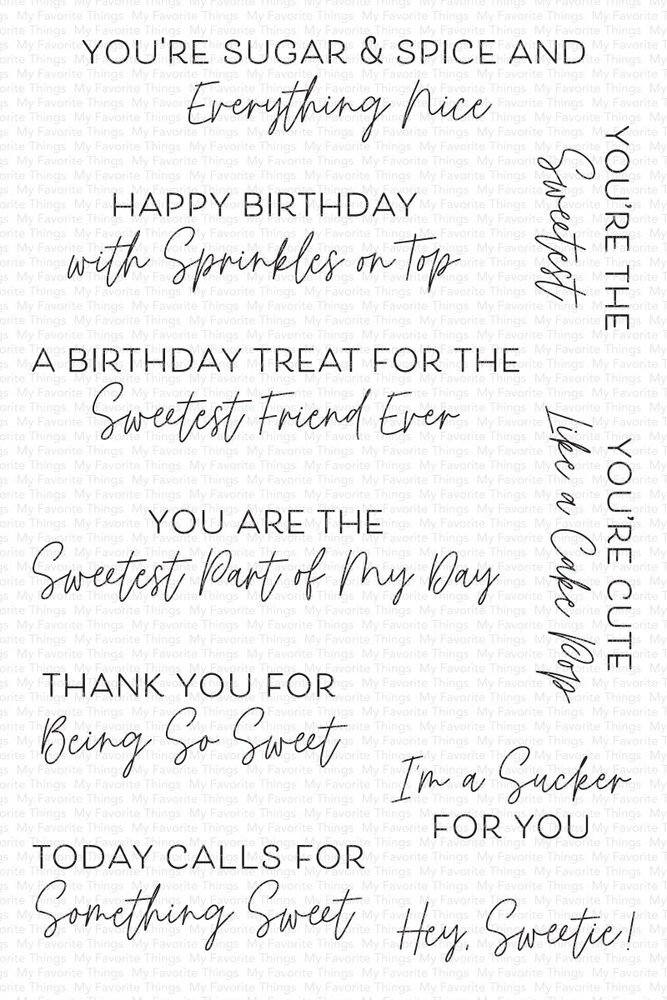 YOU'RE SUGAR & SPICE AND
Everything Nice
HAPPY BIRTHDAY
with Sprinkles on Top
YOU'RE THE
Sweetest
A BIRTHDAY TREAT FOR THE
Sweetest Friend Ever
YOU'RE CUTE
Like a Cake Pop
YOU ARE THE
Sweetest Part of My Day
THANK YOU FOR
Being So Sweet
I'm a Sucker
FOR YOU
TODAY CALLS FOR
Something Sweet
Hey, Sweetie!
My Favorite Things